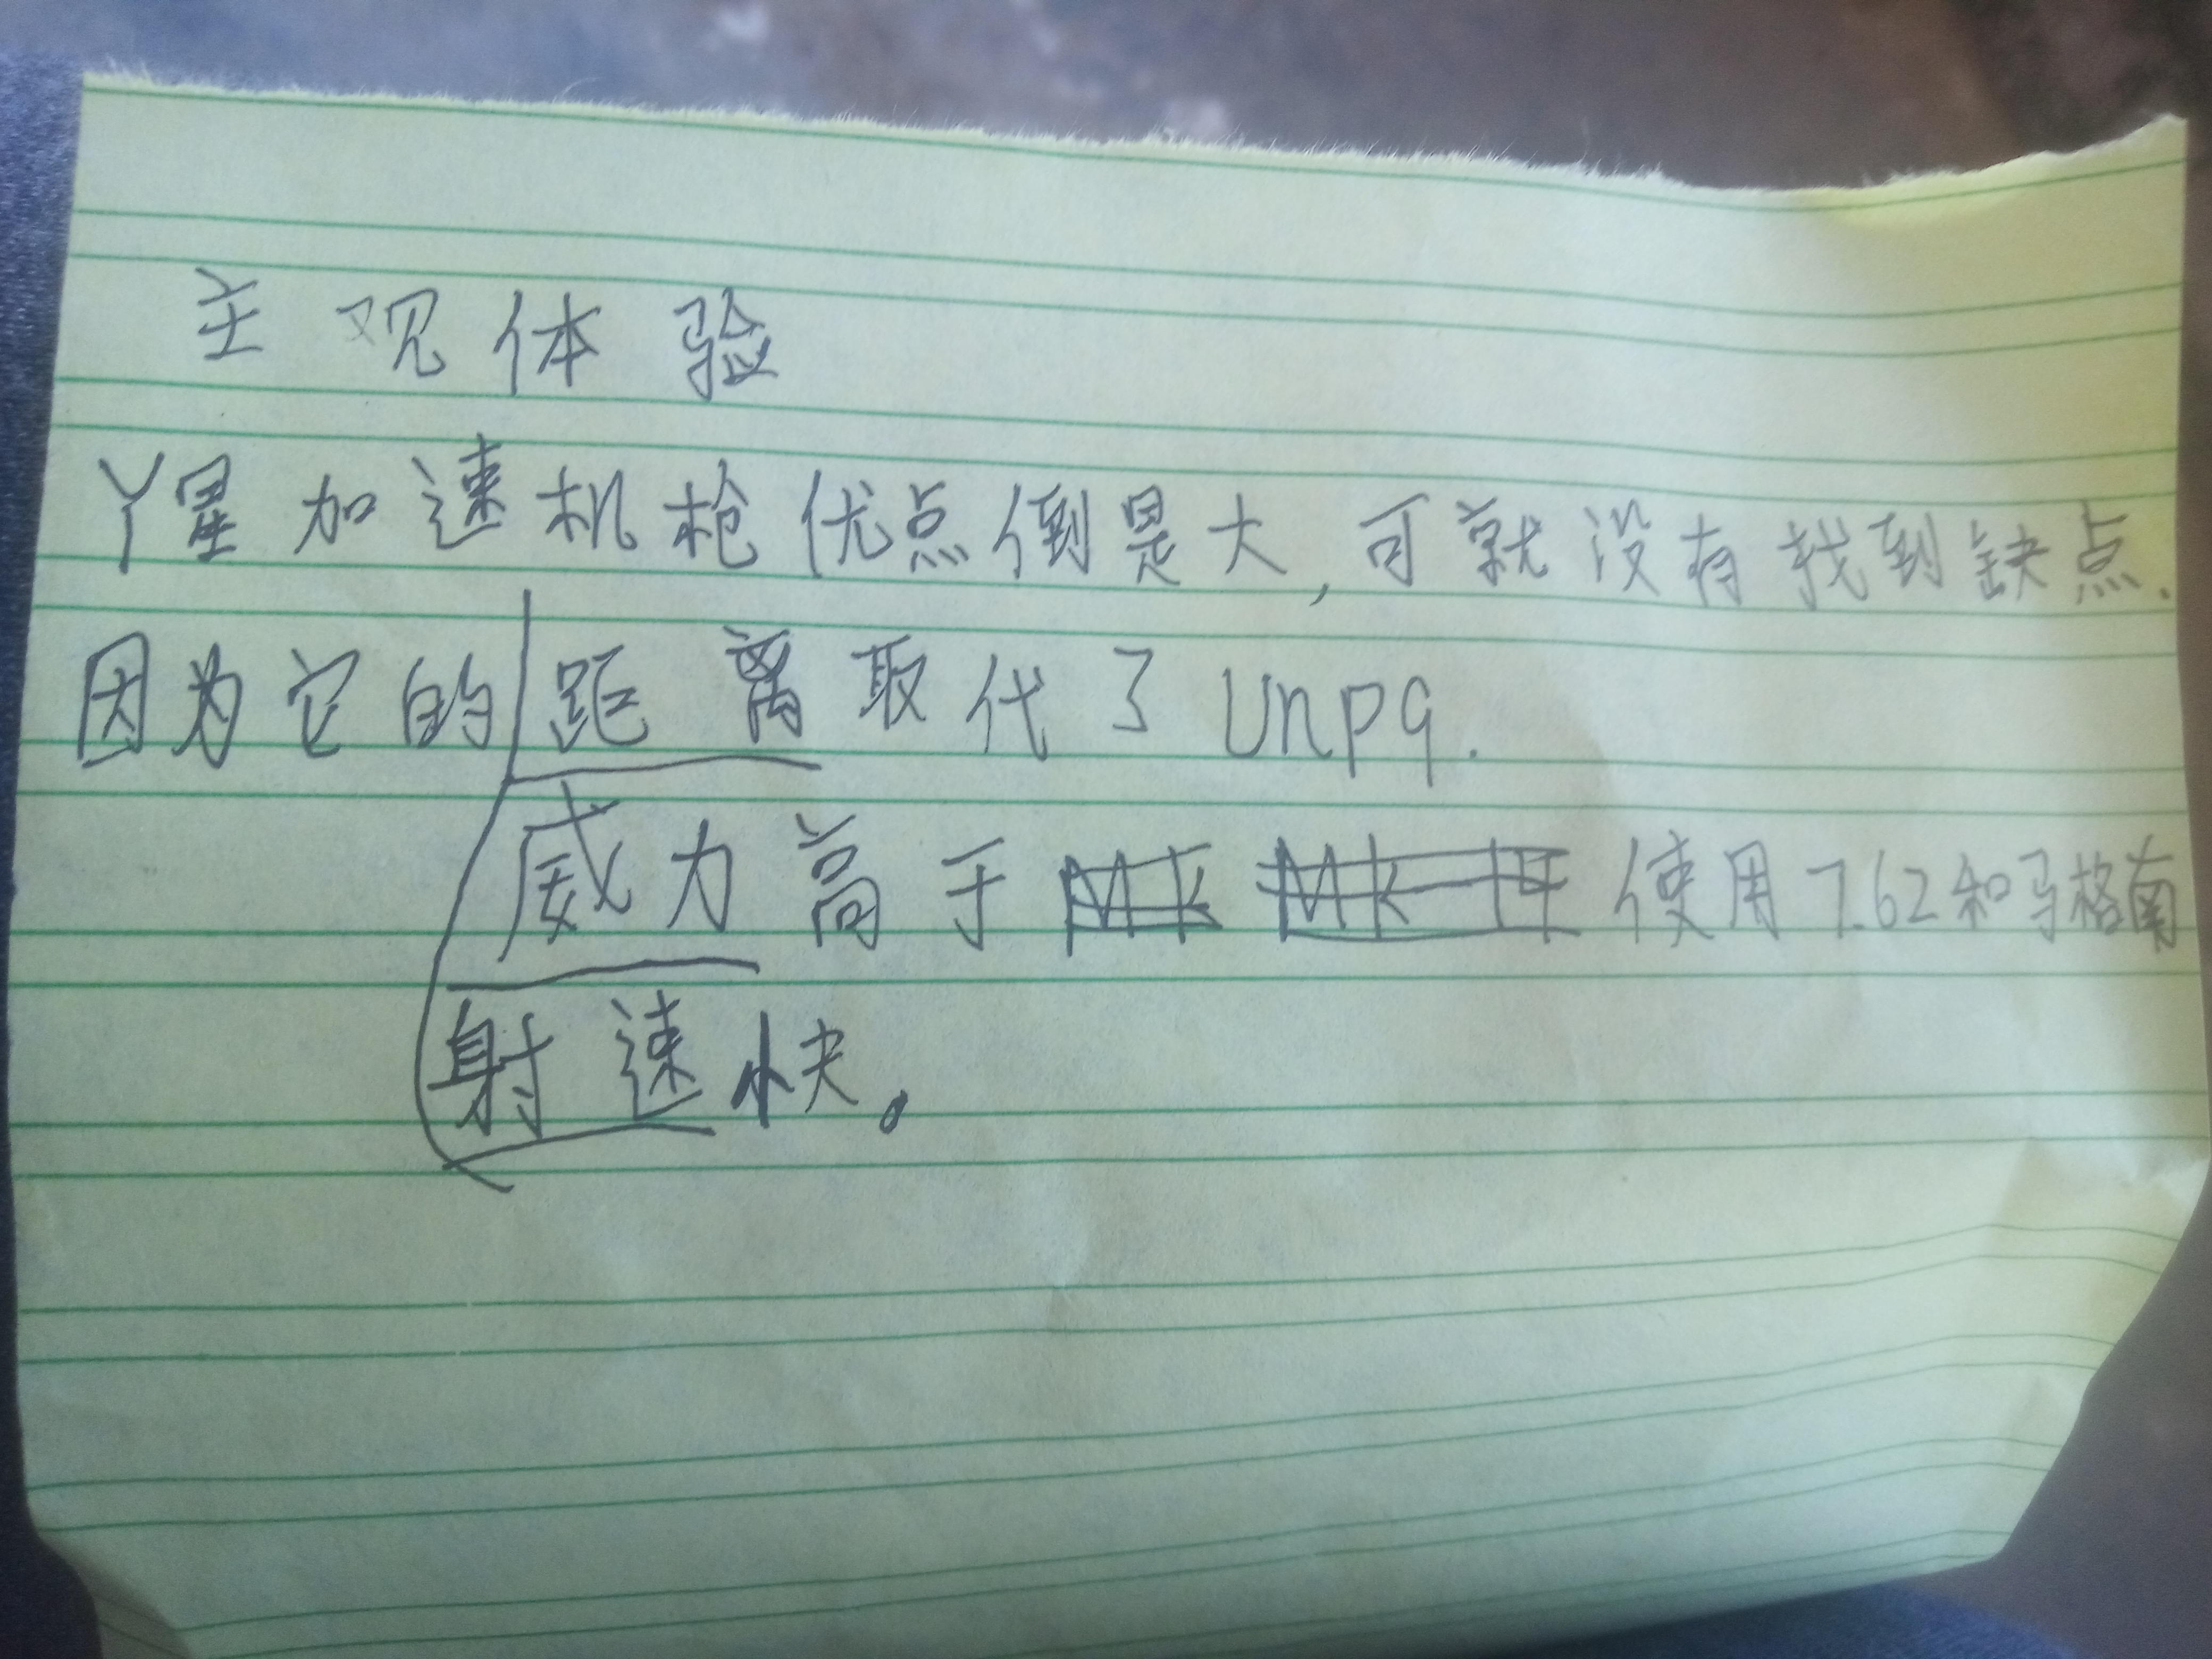 主观体验
丫星加速机枪优点倒是大,可就没有找到缺点.
因为它的距离取代了Unpq.
威力高于 使用7.62和马格南
射速快。